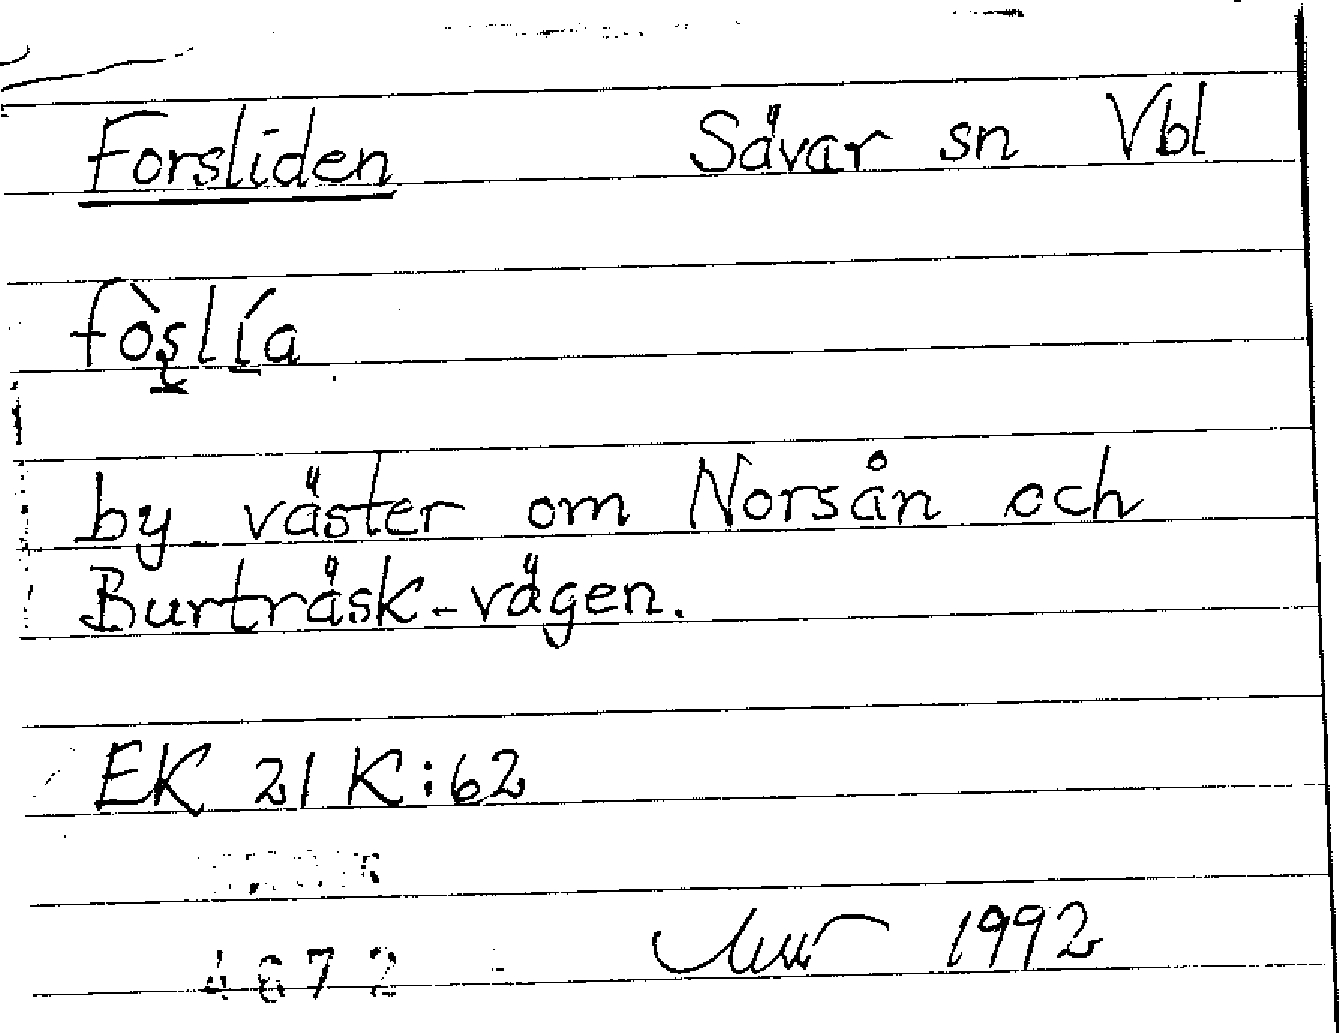 Forsliden Sävar sn Vbl
fòs̱lí̱a
by väster om Norsån och
Burträsk-vägen.
EK 21 K:62
1992
4672